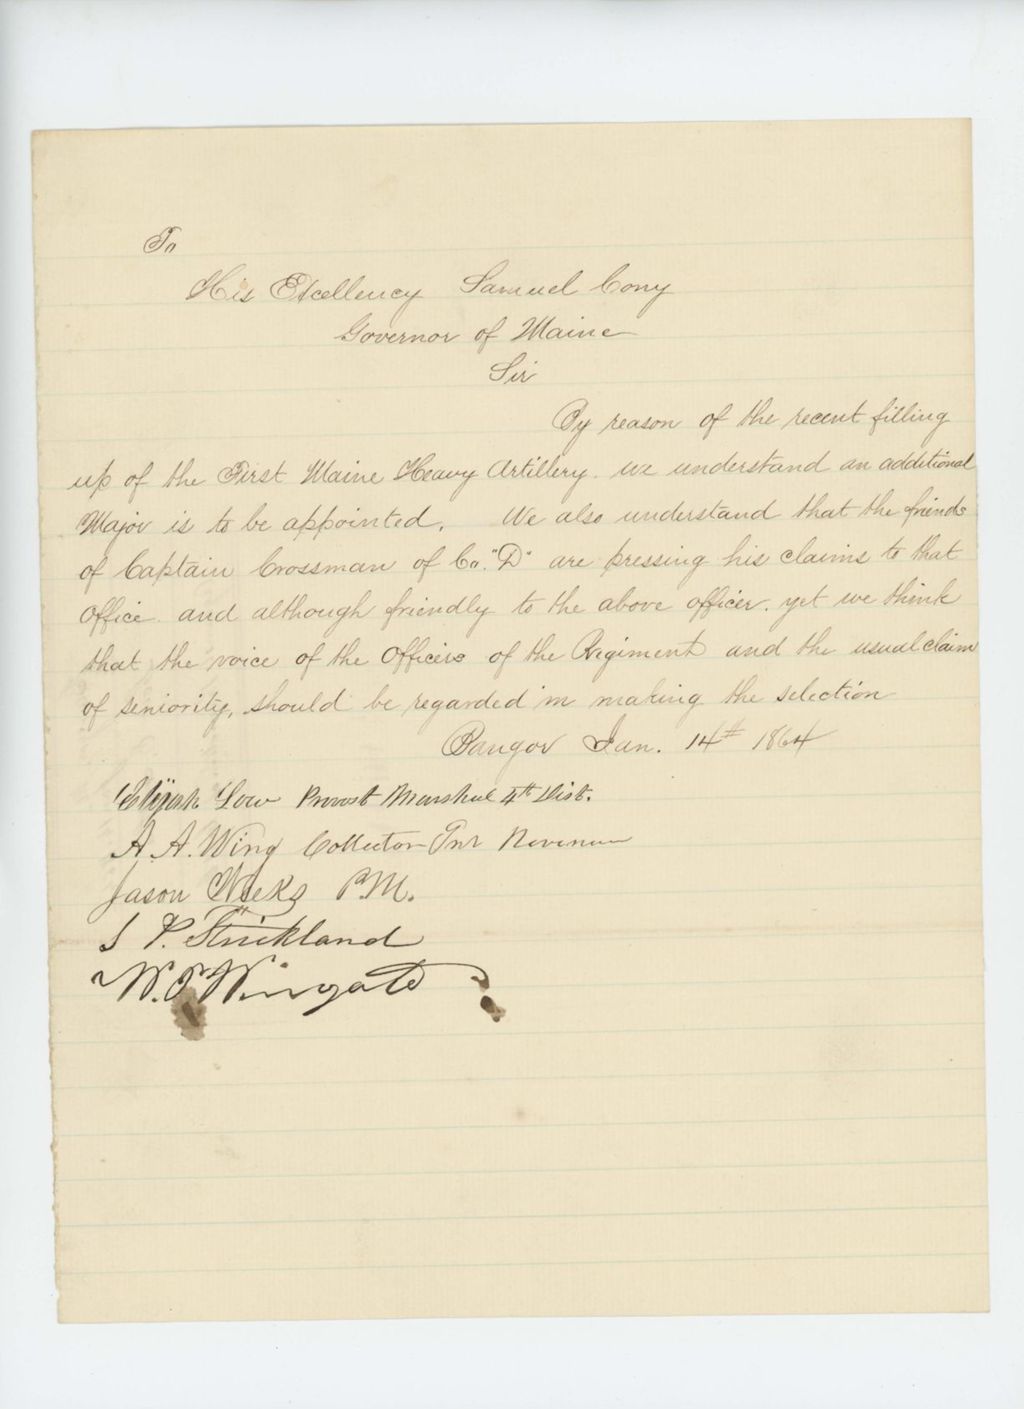 To
His Excellency Samuel Cony
Governor of Maine
Sir
By reason of the recent filling
up of the First Maine Heavy Artillery. we understand an additional
Major is to be appointed. We also understand that the friends
of Captain Crossman of Co. "D" are pressing his claims to that
Office. and although friendly to the above officer. yet we think
that the voice of the Officers of the Regiment and the usual claim
of seniority, should be regarded in making the selection
Bangor Jan. 14th 1864
Elijah Low Provost Marshal 4th Dist.
A. A. Wing Collector Int Revenue
Jason Weeks P.M.
S P. Strickland
W. P. Wingate